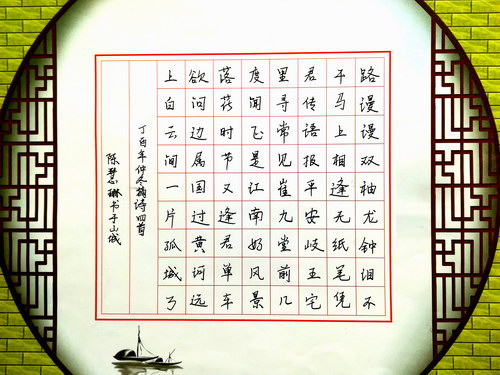 路漫漫双袖龙钟泪不
干马上相逢无纸笔凭
君传语报平安岐王宅
里寻常见崔九堂前几
度闻正是江南好风景
落花时节又逢君单车
欲问边属国过黄河远
上白云间一片孤城万
丁酉年仲冬摘诗四首
陈慧琳书于山城